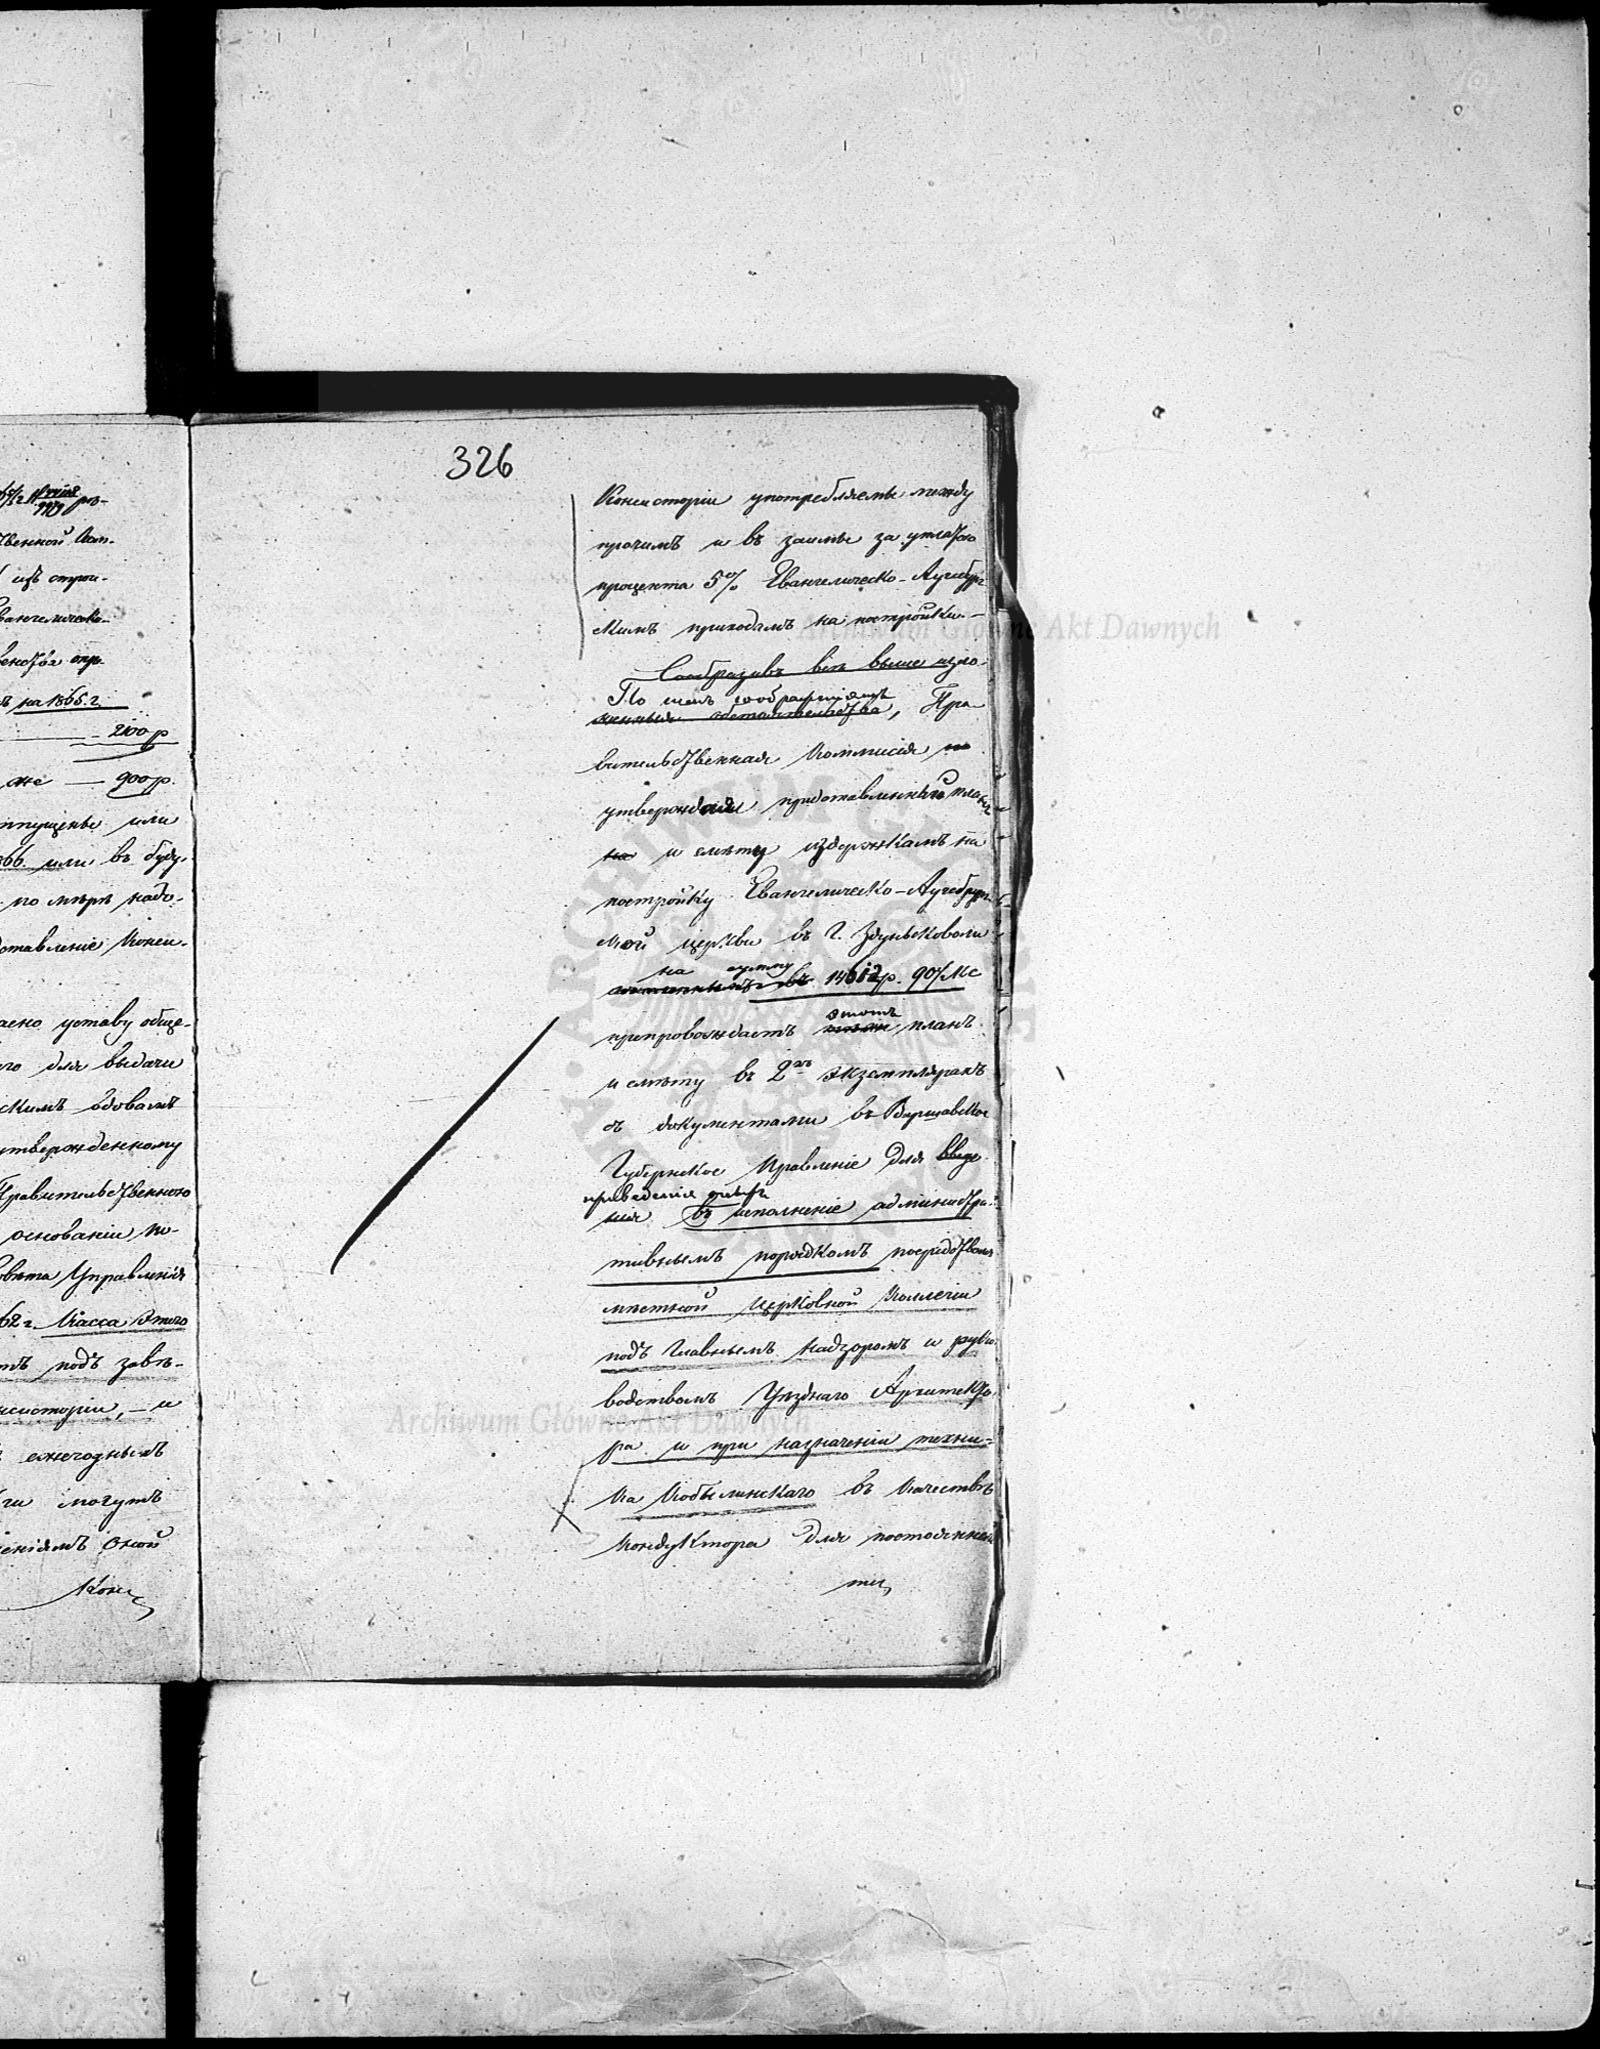 326
твенной Ком-
изъ строи-
вангелическо-
ъ на 1865 г.
2100 р
же — 900 р.
или
66 или въ буду-
по мѣрѣ надо-
доставленіе Конси-
уставу обще-
го для выдачи
скимъ вдовамъ
утвержденному
Правительственною
основаніи по-
овѣта Управленія
62 г. Касса этого
тъ подъ завѣ-
нсисторіи, — и
ежегоднымъ
ги могутъ
еніямъ оной
Кон
Консисторіи употребляемы между
прочимъ и въ займы за уплатою
процента 5% Евангелическо-Аугсбург
скимъ приходамъ на постройки.—
Сообразивъ всѣ выше изло-
По симъ соображеніямъ
женныя обстоятельства, Пра-
вительственная Коммисія
утверждая представленный планъ
на и смѣту издержкамъ на
постройку Евангелическо-Аугсбург
ской церкви въ г. Здунсковоли
на сумму
14612 р. 90½ Kс
препровождаетъ этотъ планъ
и смѣту въ 2хъ экземплярахъ
съ документами въ Варшавское
Губернское Правленіе для введе
приведенія
нія въ исполненіе администра-
тивнымъ порядкомъ посредствомъ
мѣстной церковной Коллегіи
подъ главнымъ надзоромъ и руко-
водствомъ Уѣзднаго Архитекто-
ра и при назначеніи техни-
ка Кобылинскаго въ качествѣ
кондуктора для постоянной